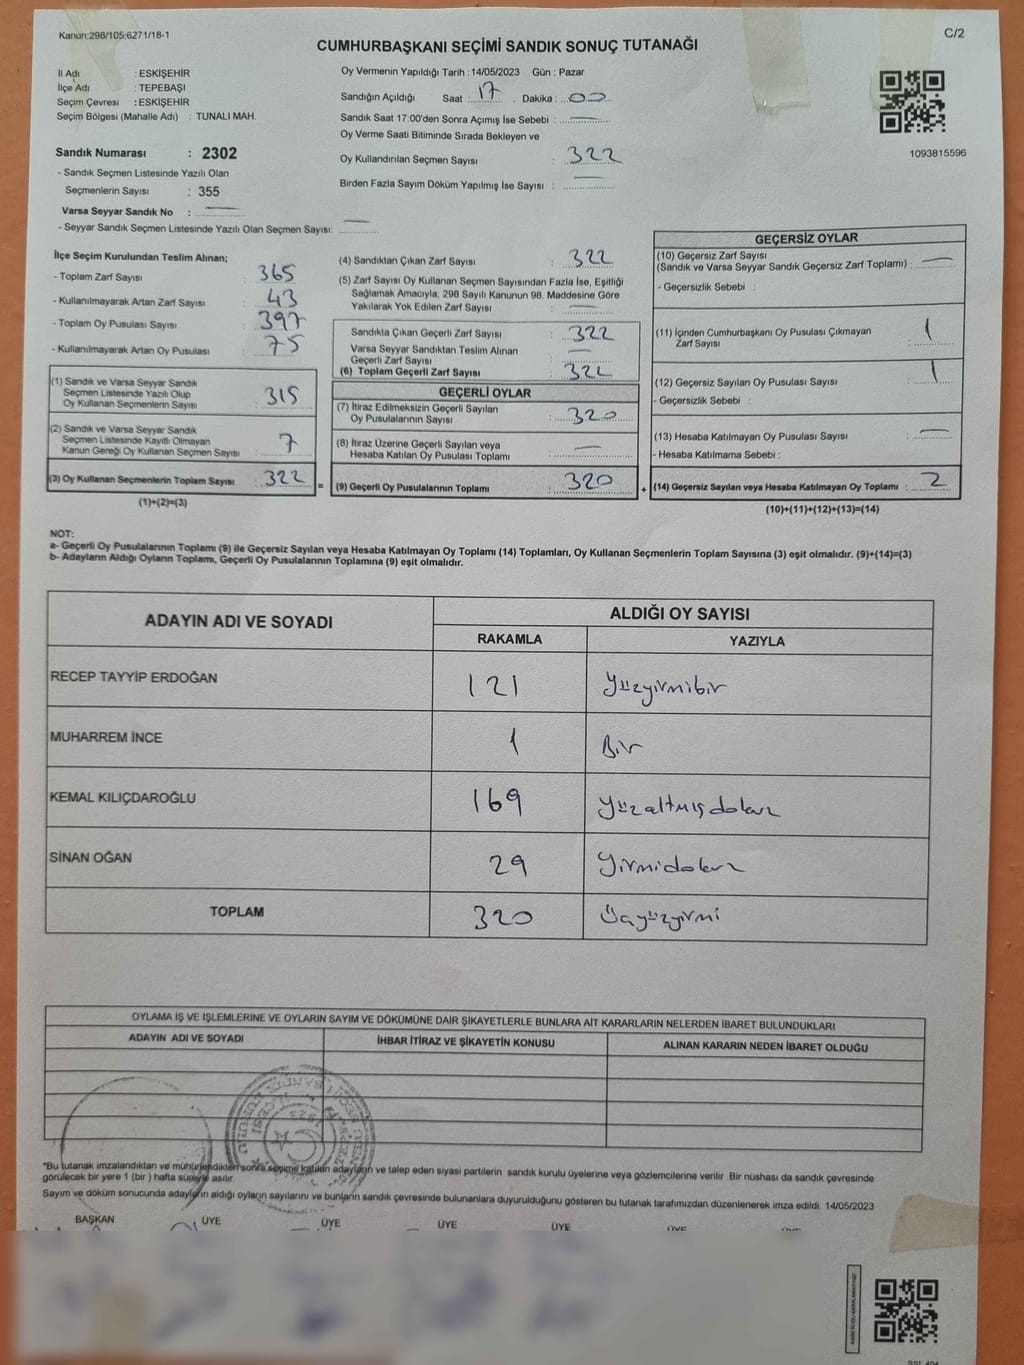 Kanun:298/105;6271/18-1
C/2
CUMHURBAŞKANI SEÇİMİ SANDIK SONUÇ TUTANAĞI
İl Adı : ESKİŞEHİR
İlçe Adı : TEPEBAŞI
Seçim Çevresi : ESKİŞEHİR
Seçim Bölgesi (Mahalle Adı) : TUNALI MAH.
Sandık Numarası : 2302
- Sandık Seçmen Listesinde Yazılı Olan
Seçmenlerin Sayısı : 355
Varsa Seyyar Sandık No : —
- Seyyar Sandık Seçmen Listesinde Yazılı Olan Seçmen Sayısı: —
Oy Vermenin Yapıldığı Tarih : 14/05/2023 Gün : Pazar
Sandığın Açıldığı Saat : 17 Dakika : 00
Sandık Saat 17:00'den Sonra Açımış İse Sebebi : —
Oy Verme Saati Bitiminde Sırada Bekleyen ve
Oy Kullandırılan Seçmen Sayısı : 322
Birden Fazla Sayım Döküm Yapılmış İse Sayısı : —
1093815596
İlçe Seçim Kurulundan Teslim Alınan;
- Toplam Zarf Sayısı : 365
- Kullanılmayarak Artan Zarf Sayısı : 43
- Toplam Oy Pusulası Sayısı : 397
- Kullanılmayarak Artan Oy Pusulası : 75
(1) Sandık ve Varsa Seyyar Sandık
Seçmen Listesinde Yazılı Olup
Oy Kullanan Seçmenlerin Sayısı : 315
(2) Sandık ve Varsa Seyyar Sandık
Seçmen Listesinde Kayıtlı Olmayan
Kanun Gereği Oy Kullanan Seçmen Sayısı : 7
(3) Oy Kullanan Seçmenlerin Toplam Sayısı : 322
(1)+(2)=(3)
=
(4) Sandıktan Çıkan Zarf Sayısı : 322
(5) Zarf Sayısı Oy Kullanan Seçmen Sayısından Fazla İse, Eşitliği
Sağlamak Amacıyla, 298 Sayılı Kanunun 98. Maddesine Göre
Yakılarak Yok Edilen Zarf Sayısı : —
Sandıkta Çıkan Geçerli Zarf Sayısı : 322
Varsa Seyyar Sandıktan Teslim Alınan
Geçerli Zarf Sayısı : —
(6) Toplam Geçerli Zarf Sayısı : 322
GEÇERLİ OYLAR
(7) İtiraz Edilmeksizin Geçerli Sayılan
Oy Pusulalarının Sayısı : 320
(8) İtiraz Üzerine Geçerli Sayılan veya
Hesaba Katılan Oy Pusulası Toplamı : —
(9) Geçerli Oy Pusulalarının Toplamı : 320
+
GEÇERSİZ OYLAR
(10) Geçersiz Zarf Sayısı
(Sandık ve Varsa Seyyar Sandık Geçersiz Zarf Toplamı) : —
- Geçersizlik Sebebi :
(11) İçinden Cumhurbaşkanı Oy Pusulası Çıkmayan
Zarf Sayısı : 1
(12) Geçersiz Sayılan Oy Pusulası Sayısı : 1
- Geçersizlik Sebebi :
(13) Hesaba Katılmayan Oy Pusulası Sayısı : —
- Hesaba Katılmama Sebebi :
(14) Geçersiz Sayılan veya Hesaba Katılmayan Oy Toplamı : 2
(10)+(11)+(12)+(13)=(14)
NOT:
a- Geçerli Oy Pusulalarının Toplamı (9) ile Geçersiz Sayılan veya Hesaba Katılmayan Oy Toplamı (14) Toplamları, Oy Kullanan Seçmenlerin Toplam Sayısına (3) eşit olmalıdır. (9)+(14)=(3)
b- Adayların Aldığı Oyların Toplamı, Geçerli Oy Pusulalarının Toplamına (9) eşit olmalıdır.
ADAYIN ADI VE SOYADI
ALDIĞI OY SAYISI
RAKAMLA YAZIYLA
RECEP TAYYİP ERDOĞAN 121 Yüzyirmibir
MUHARREM İNCE 1 Bir
KEMAL KILIÇDAROĞLU 169 Yüzaltmışdokuz
SİNAN OĞAN 29 Yirmidokuz
TOPLAM 320 Üçyüzyirmi
OYLAMA İŞ VE İŞLEMLERİNE VE OYLARIN SAYIM VE DÖKÜMÜNE DAİR ŞİKAYETLERLE BUNLARA AİT KARARLARIN NELERDEN İBARET BULUNDUKLARI
ADAYIN ADI VE SOYADI İHBAR İTİRAZ VE ŞİKAYETİN KONUSU ALINAN KARARIN NEDEN İBARET OLDUĞU
*Bu tutanak imzalandıktan ve mühürlendikten sonra seçime katılan adayların ve talep eden siyasi partilerin sandık kurulu üyelerine veya gözlemcilerine verilir. Bir nüshası da sandık çevresinde
görülecek bir yere 1 (bir ) hafta süreyle asılır.
Sayım ve döküm sonucunda adayların aldığı oyların sayılarını ve bunların sandık çevresinde bulunanlara duyurulduğunu gösteren bu tutanak tarafımızdan düzenlenerek imza edildi. 14/05/2023
BAŞKAN ÜYE ÜYE ÜYE ÜYE ÜYE ÜYE